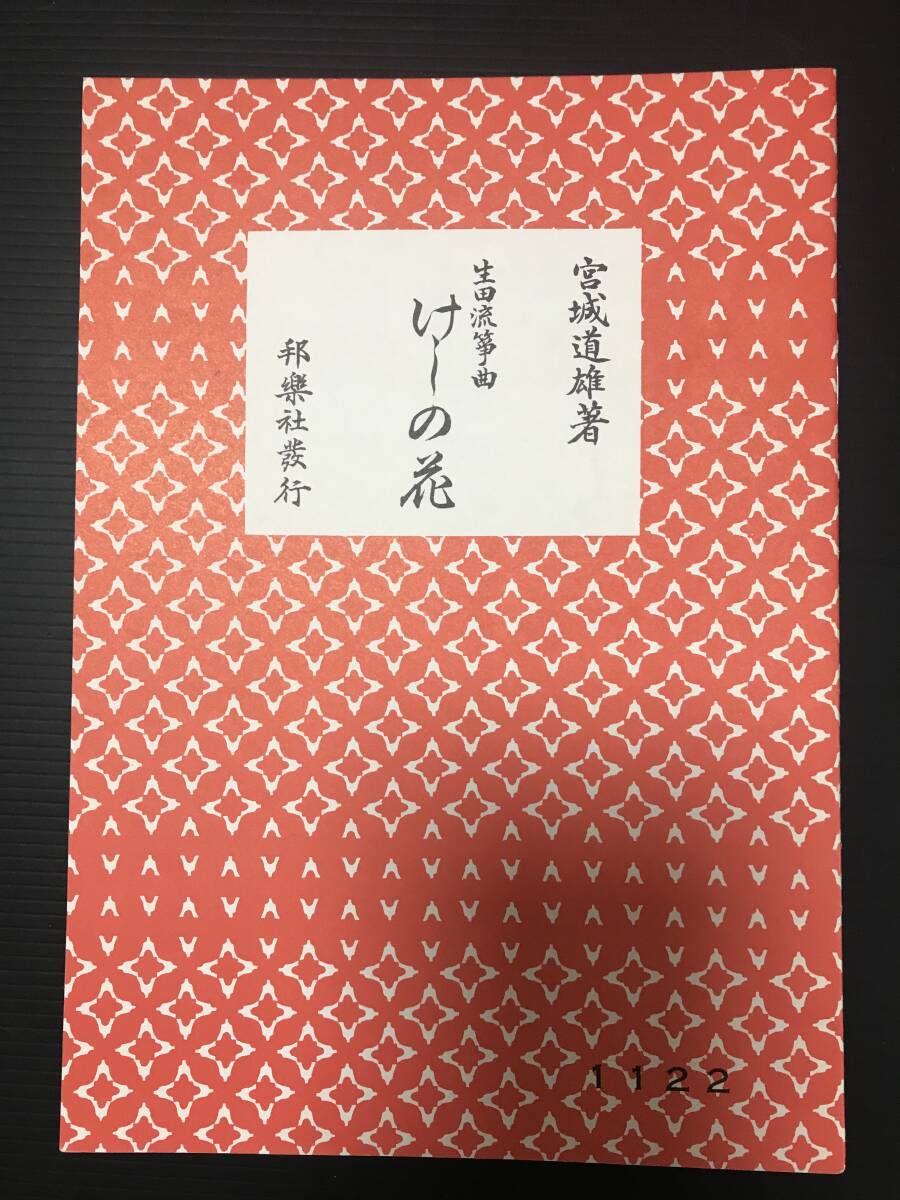 宮城道雄著
生田流箏曲
けしの花
邦樂社發行
1122